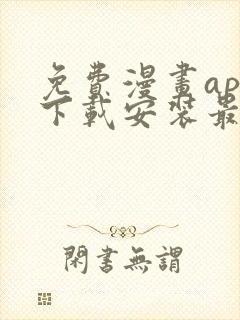 免費漫畫ap
下載安裝最
閑書無謂